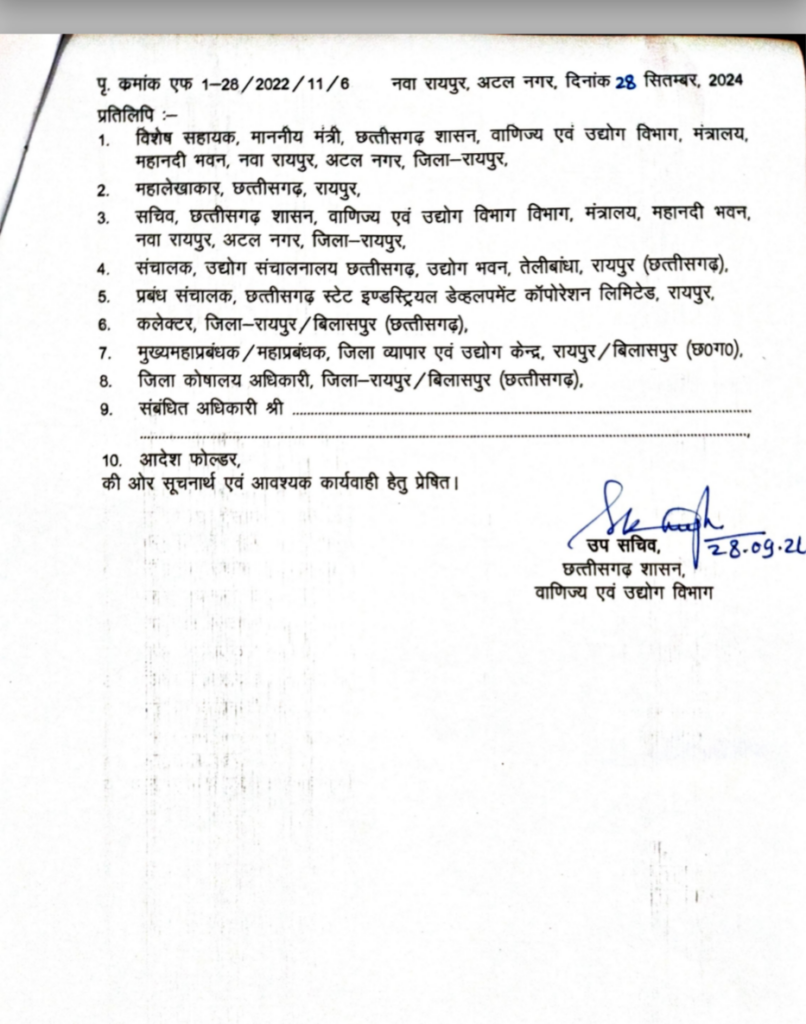 पृ. क्रमांक एफ 1–28/2022/11/6 नवा रायपुर, अटल नगर, दिनांक 28 सितम्बर, 2024
प्रतिलिपि :–
1. विशेष सहायक, माननीय मंत्री, छत्तीसगढ़ शासन, वाणिज्य एवं उद्योग विभाग, मंत्रालय,
महानदी भवन, नवा रायपुर, अटल नगर, जिला–रायपुर,
2. महालेखाकार, छत्तीसगढ़, रायपुर,
3. सचिव, छत्तीसगढ़ शासन, वाणिज्य एवं उद्योग विभाग विभाग, मंत्रालय, महानदी भवन,
नवा रायपुर, अटल नगर, जिला–रायपुर,
4. संचालक, उद्योग संचालनालय छत्तीसगढ़, उद्योग भवन, तेलीबांधा, रायपुर (छत्तीसगढ़),
5. प्रबंध संचालक, छत्तीसगढ़ स्टेट इण्डस्ट्रियल डेव्हलपमेंट कॉपोरेशन लिमिटेड, रायपुर,
6. कलेक्टर, जिला–रायपुर/बिलासपुर (छत्तीसगढ़),
7. मुख्यमहाप्रबंधक/महाप्रबंधक, जिला व्यापार एवं उद्योग केन्द्र, रायपुर/बिलासपुर (छ0ग0),
8. जिला कोषालय अधिकारी, जिला–रायपुर/बिलासपुर (छत्तीसगढ़),
9. संबंधित अधिकारी श्री ........................................
........................................,
10. आदेश फोल्डर,
की ओर सूचनार्थ एवं आवश्यक कार्यवाही हेतु प्रेषित।
उप सचिव, 28.09.2
छत्तीसगढ़ शासन,
वाणिज्य एवं उद्योग विभाग